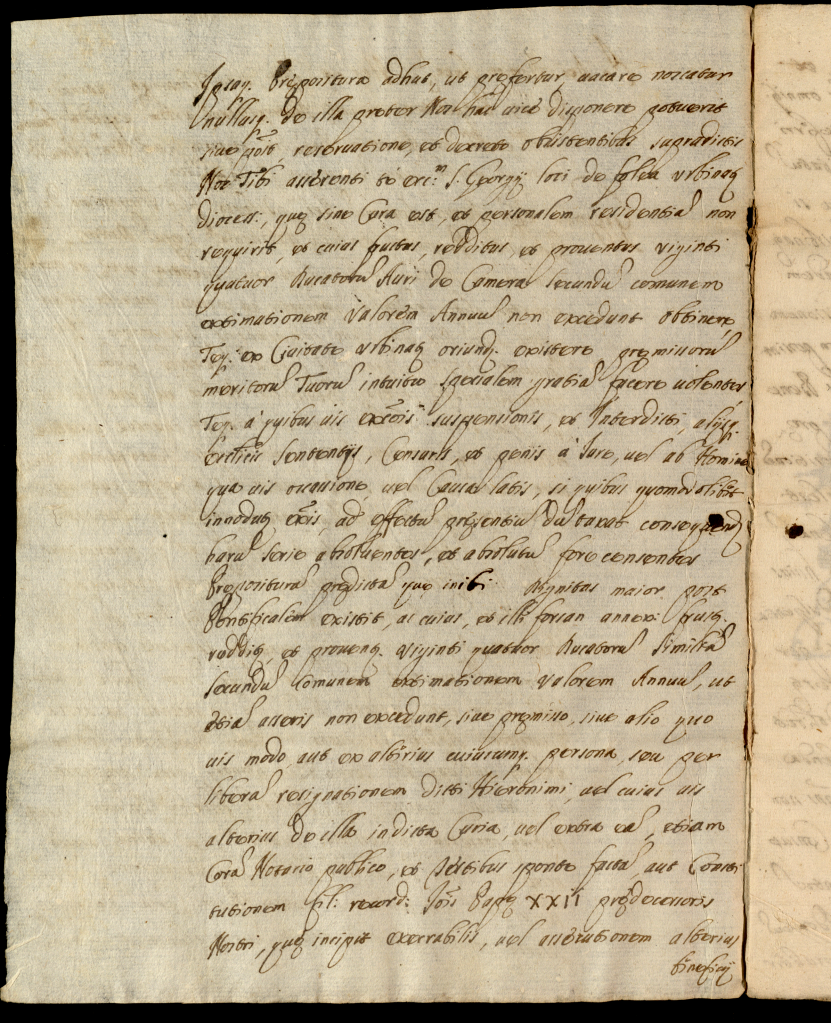 Ipsaq. Prepositura adhuc, ut prefertur vacare noscatur
nullusq. de illa preter Nos hac vice disponere potuerit
sive pot, reservatione, et decreto obsistentibus supradictis
Nos Tibi asserenti te S. Georgij loci de folea Urbinaq
diocess:, quę sine Cura est, et personalem residentiā non
requirit, et cuius fructus, redditus, et proventus viginti
quatuor Ducatorū Auri de Camera secundū comunem
extimationem Valorem Annuū non excedunt obtinere,
Teq. ex Civitate Urbinaq oriundę existere premissorū
meritorū Tuorū intuitu specialem gratiā facere volentes,
Teq. a quibus vis excōis suspensionis, et Interdicti, alijsq.
ecclīcis sententijs, Censuris, et penis a Iure, vel ab Homine
qua vis occasione, vel Causa latis, si quibus quomodolibet
innodatq exīs, ad effectū presentiū dūtaxat consequend
harū serie absolventes, et absolutū fore censentes
Prepositurā predictā quę inibi Dignitas maior post
Pontificalem existit, ac cuius, et illi forsan annexi fructq.
redditq, et proventq. viginti quatuor Ducatorū similiū
secundū comunem extimationem valorem Annuū, ut
etiā asseris non excedunt, sive premisso, sive alio quo
vis modo aut ex alterius cuiuscunq. persona, seu per
liberā resignationem dicti Hieronimi, vel cuius vis
alterius de illa in dicta Curia, vel extra eā, etiam
Corā Notario publico, et testibus sponte factā, aut Consti
tutionem fel: record: Joīs Papę XXII predecessoris
Nostri, quę incipit execrabilis, vel assecutionem alterius
beneficij